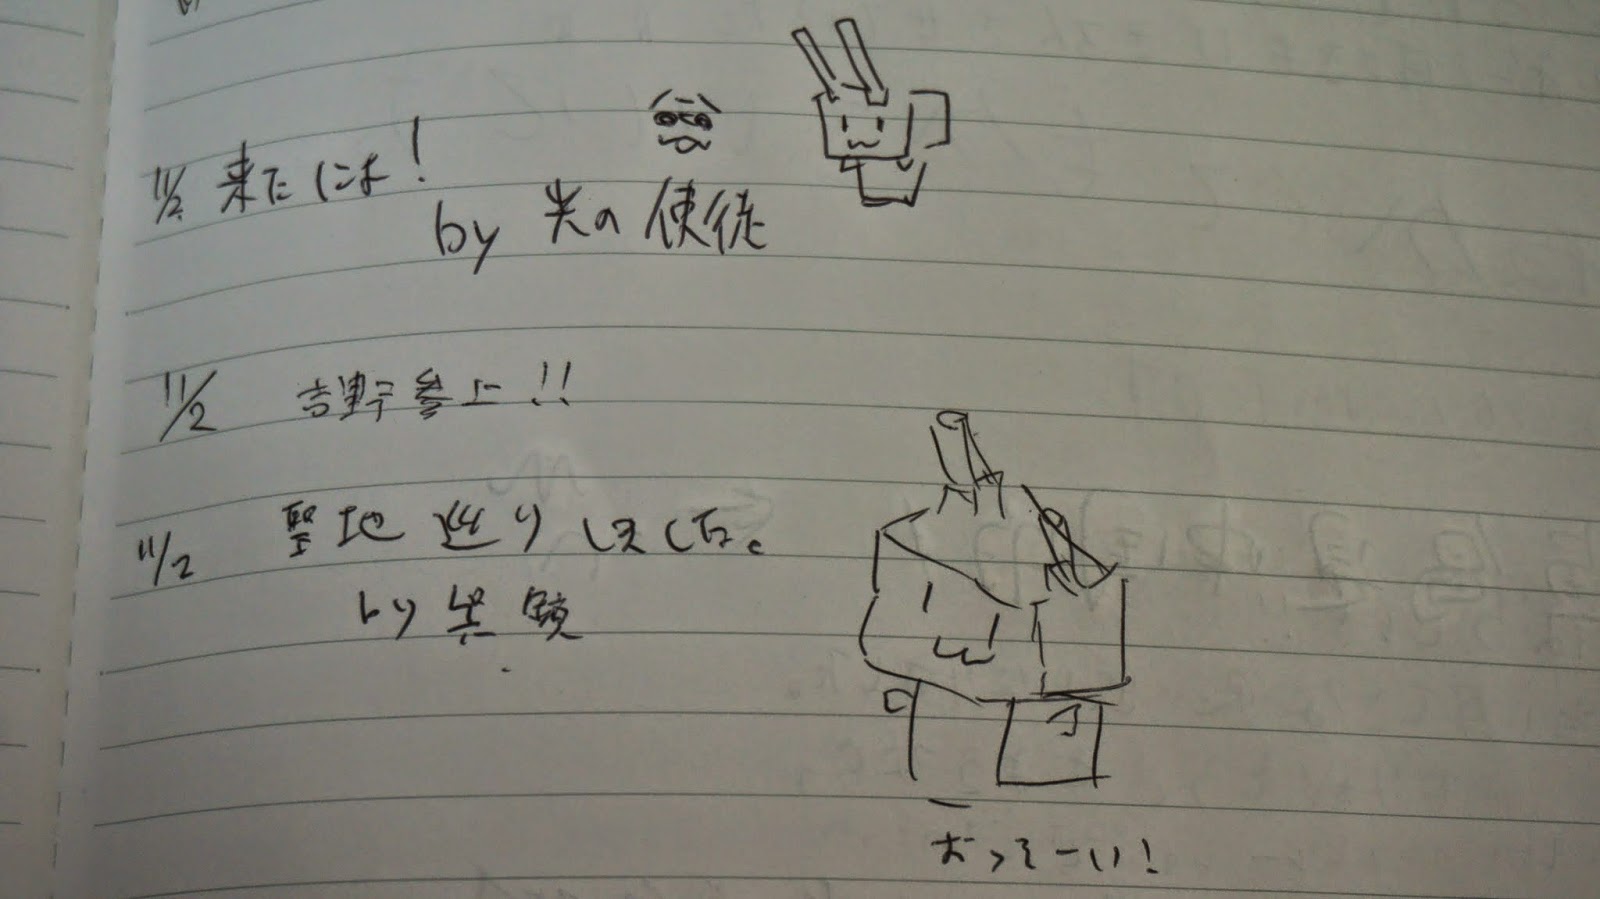 11/2 来たにょ!
by 光の使徒
11/2 吉野参上!!
11/2 聖地巡りしました。
by
おっそーい!